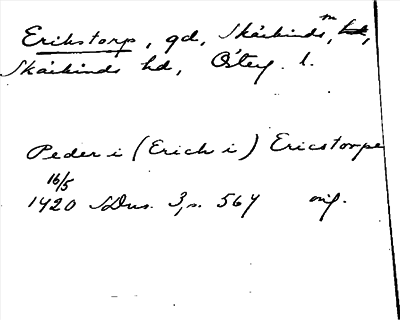 Erikstorp, gd, Skärkinds sn,
Skärkinds hd, Östg. l.
Peder i (Erich i) Ericstorpe
16/5
1420 SDns. 3, s. 567 orig.